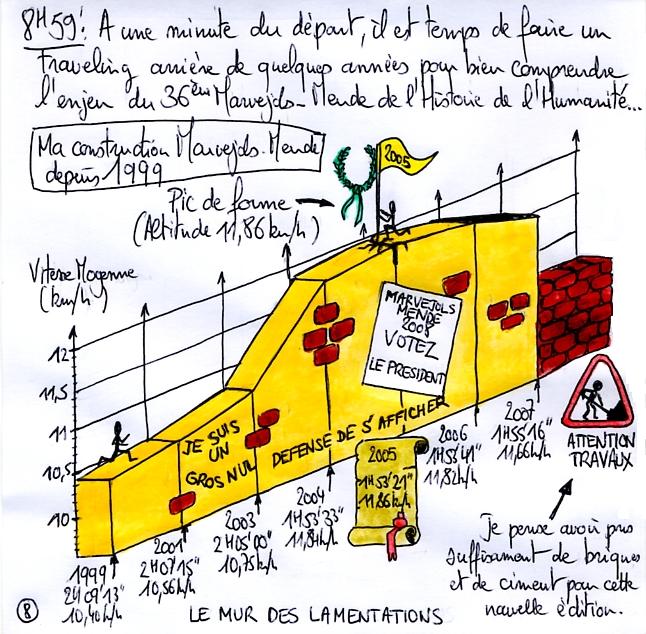 8H59': A une minute du départ, il est temps de faire un
Traveling arrière de quelques années pour bien comprendre
l'enjeu du 36ème Marvejols-Mende de l'Histoire de l'Humanité...
Ma construction Marvejols-Mende
depuis 1999
2005
Pic de forme
(Altitude 11,86km/h)
Vitesse Moyenne
(km/h)
12
11,5
11
10,5
10
MARVEJOLS
MENDE
2008
VOTEZ
LE PRESIDENT
JE SUIS
UN
GROS NUL
DEFENSE DE S'AFFICHER
1999
2H09'13"
10,40km/h
2001
2H07'15"
10,56km/h
2003
2H05'00"
10,75km/h
2004
1H53'33"
11,84km/h
2005
1H53'21"
11,86km/h
2006
1H53'41"
11,82km/h
2007
1H55'16"
11,66km/h
ATTENTION
TRAVAUX
Je pense avoir pris
suffisament de briques
et de ciment pour cette
nouvelle édition.
8
LE MUR DES LAMENTATIONS